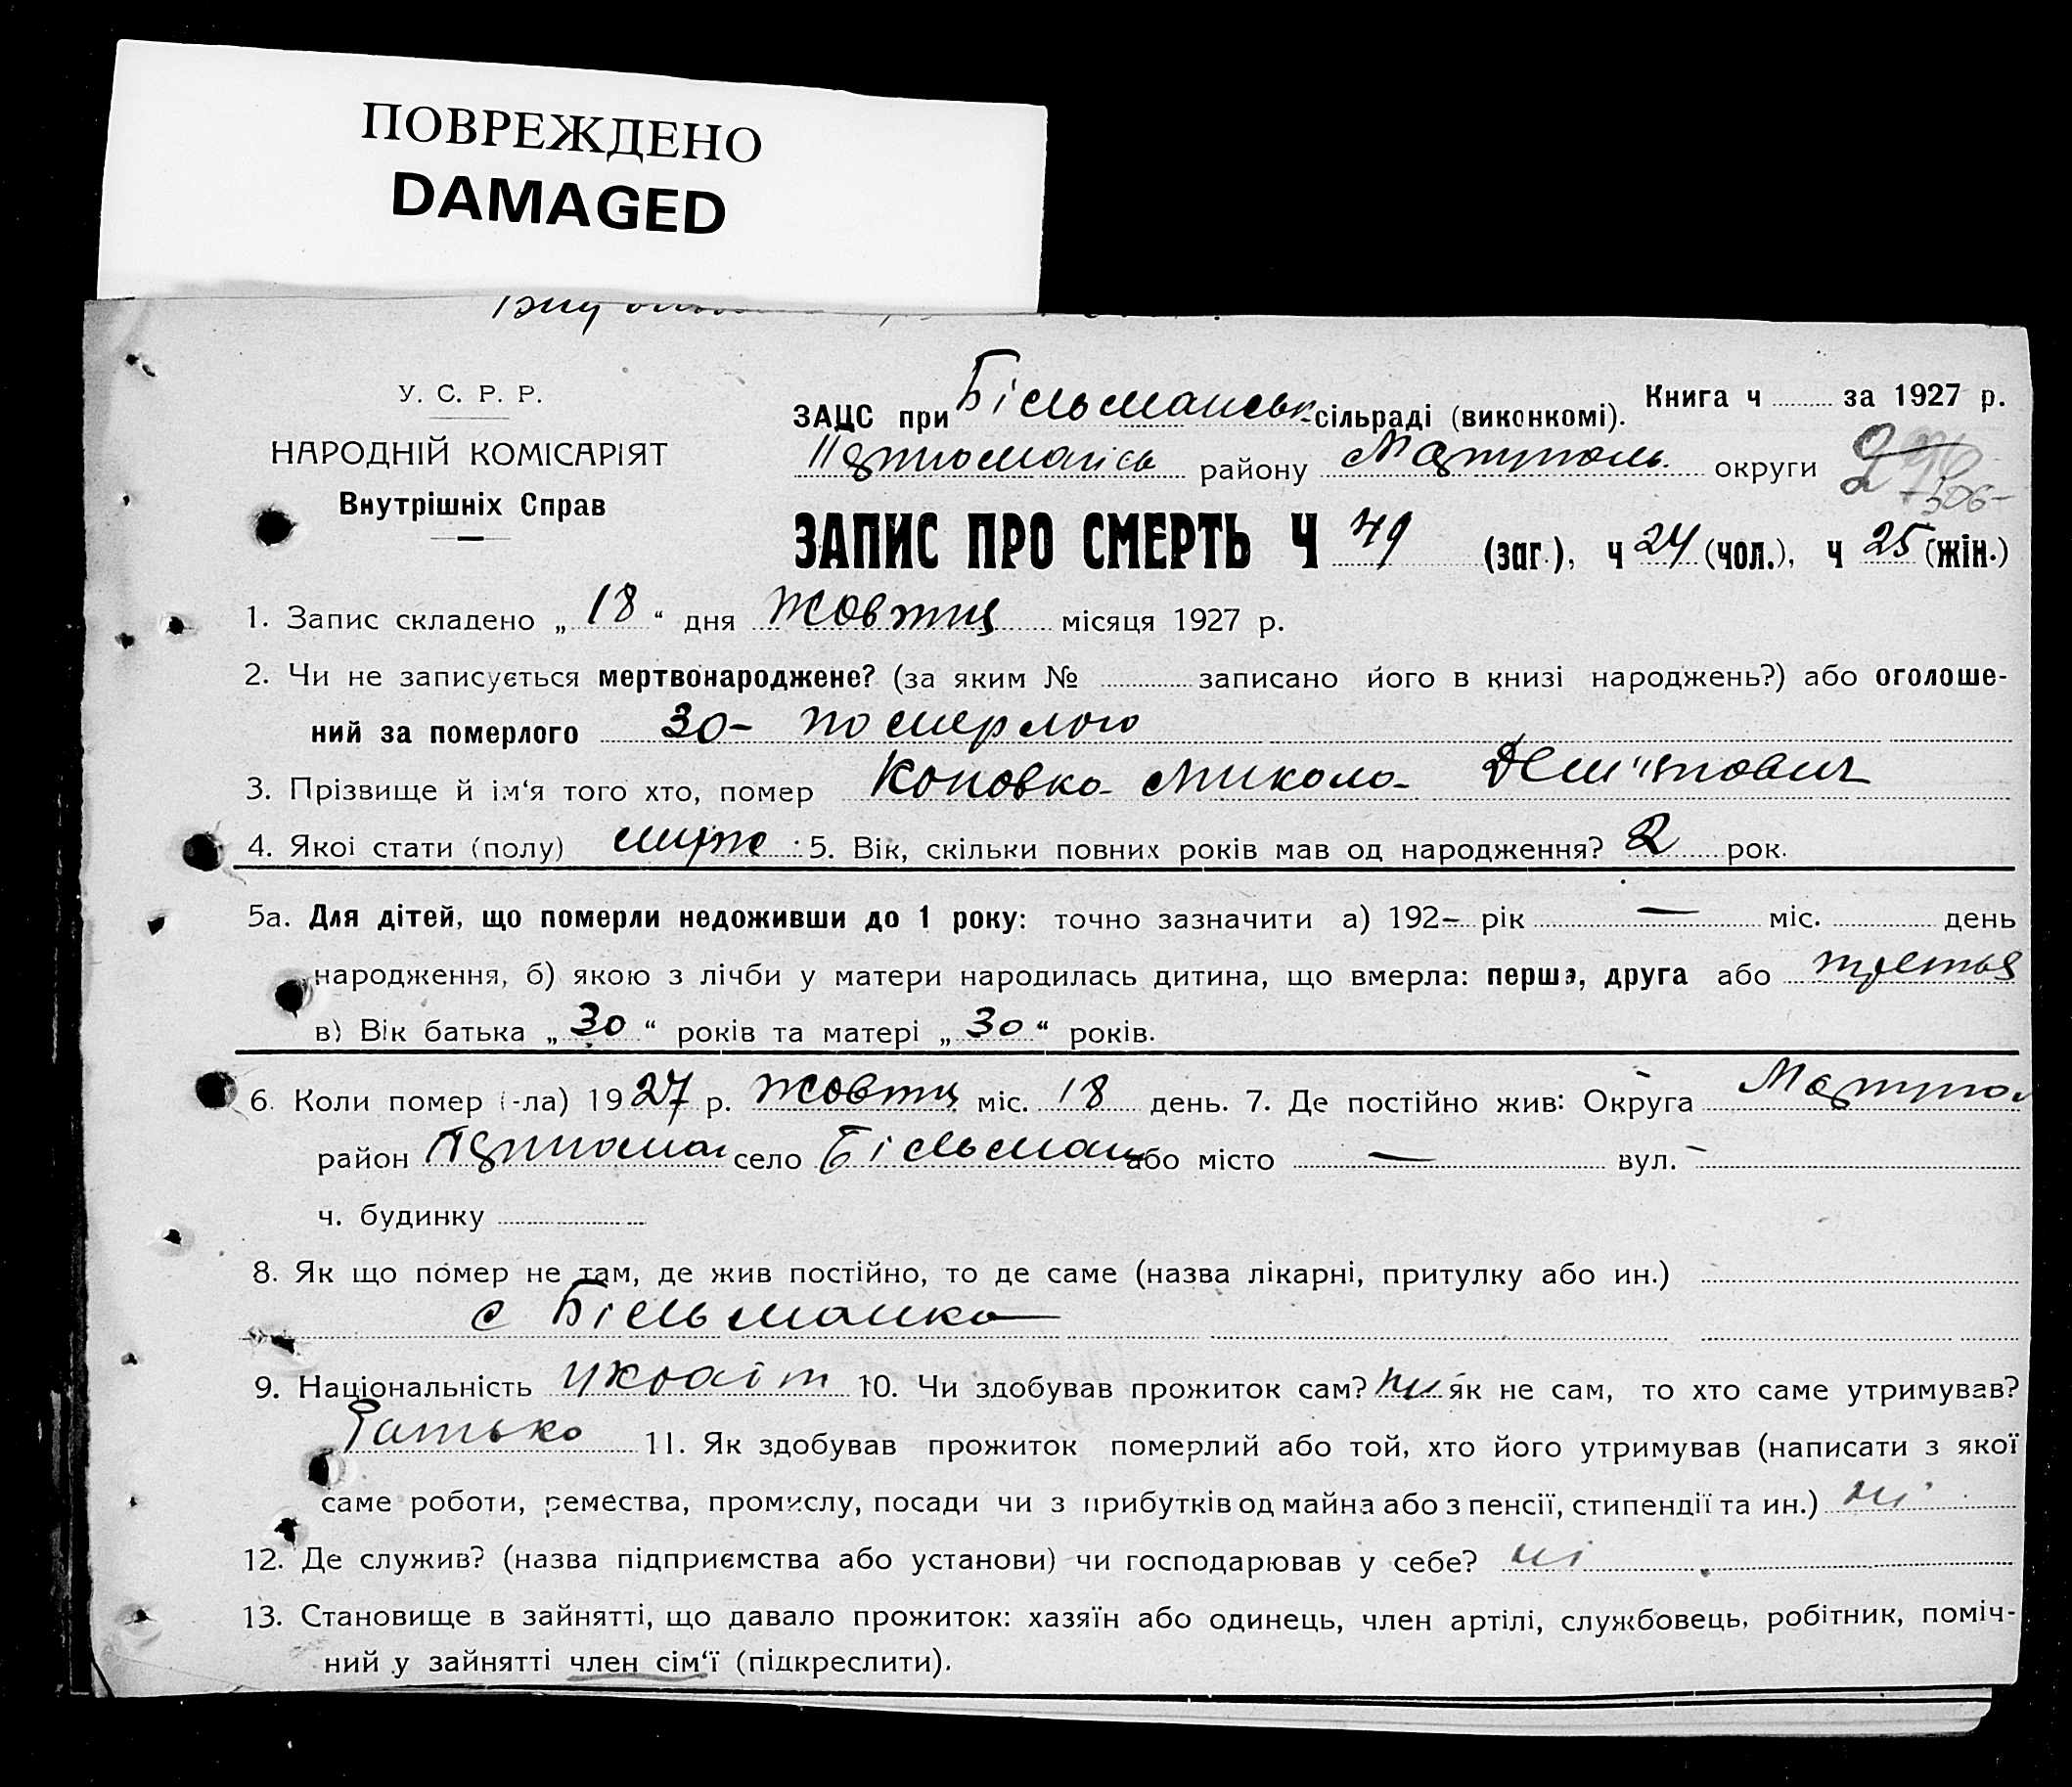 ПОВРЕЖДЕНО
DAMAGED
У. С. Р. Р.
НАРОДНІЙ КОМІСАРІЯТ
Внутрішніх Справ
Книга ч за 1927 р.
ЗАЦС при Більманськ-сільраді (виконкомі).
району Маріупольс. округи
306-
ЗАПИС ПРО СМЕРТЬ Ч 49 (заг.), ч 24 (чол.), ч 25 (жін.)
1. Запис складено „ 18 “ дня Жовтня місяця 1927 р.
2. Чи не записується мертвонароджене? (за яким № записано його в книзі народжень?) або оголоше-
ний за померлого за- померлого
3. Прізвище й ім‘я того хто, помер Коповка Микола Дем'янович
4. Якої стати (полу) муж 5. Вік, скільки повних років мав од народження? 2 рок.
5а. Для дітей, що померли недоживши до 1 року: точно зазначити а) 192- рік — міс. день
народження, б) якою з лічби у матери народилась дитина, що вмерла: перша, друга або третья
в) Вік батька „ 30 “ років та матері „ 30 “ років.
6. Коли помер (-ла) 1927 р. Жовтн міс. 18 день. 7. Де постійно жив: Округа Маріупол
район село Більман або місто — вул. -
ч. будинку
8. Як що помер не там, де жив постійно, то де саме (назва лікарні, притулку або ин.)
с Більманка
9. Національність україн 10. Чи здобував прожиток сам? ни як не сам, то хто саме утримував?
Батько 11. Як здобував прожиток померлий або той, хто його утримував (написати з якої
саме роботи, ремества, промислу, посади чи з прибутків од майна або з пенсії, стипендії та ин.) ні
12. Де служив? (назва підприємства або установи) чи господарював у себе? ні
13. Становище в зайнятті, що давало прожиток: хазяїн або одинець, член артілі, службовець, робітник, поміч-
ний у зайнятті член сім‘ї (підкреслити).